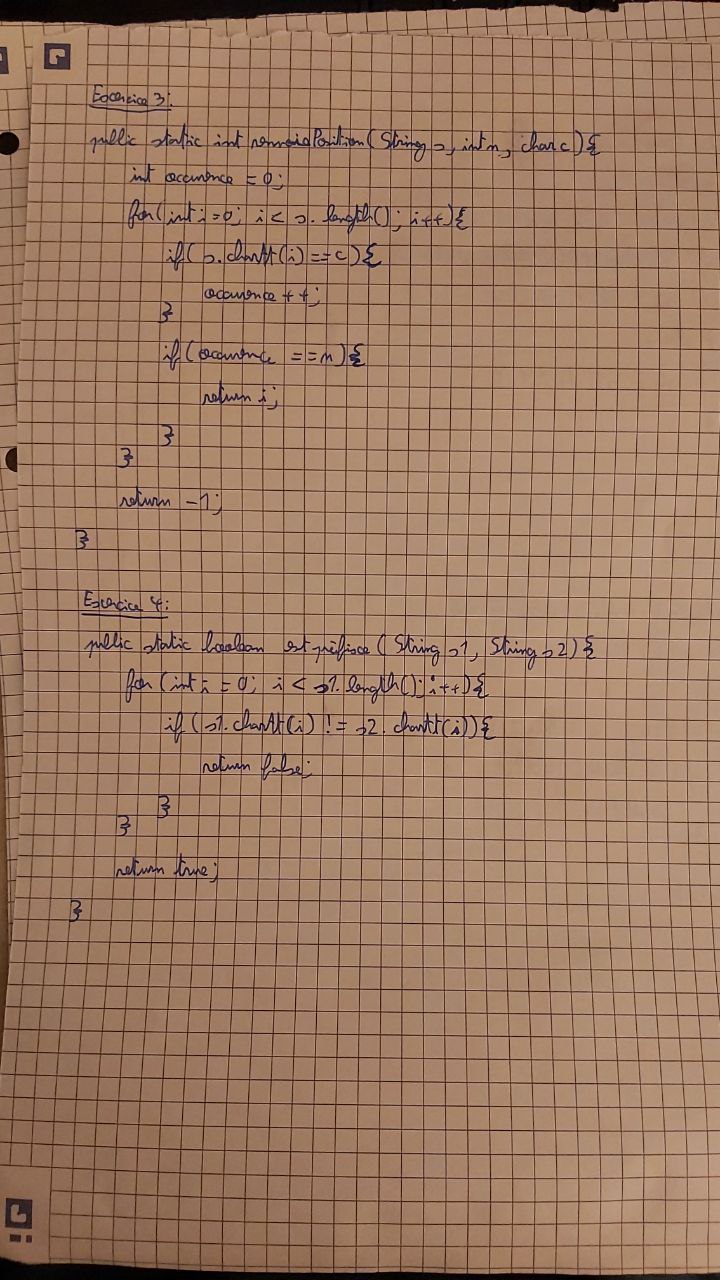 Exercice 3:
public static int renvoiePosition(String s, int n, char c){
int occurence = 0;
for(int i=0; i < s.length(); i++){
if(s.charAt(i)==c){
occurence ++;
}
if(occurence ==n){
return i;
}
}
return -1;
}
Exercice 4:
public static boolean est préfixe(String s1, String s2){
for(int i = 0; i < s1.length(); i++){
if(s1.charAt(i) != s2.charAt(i)){
return false;
}
}
return true;
}